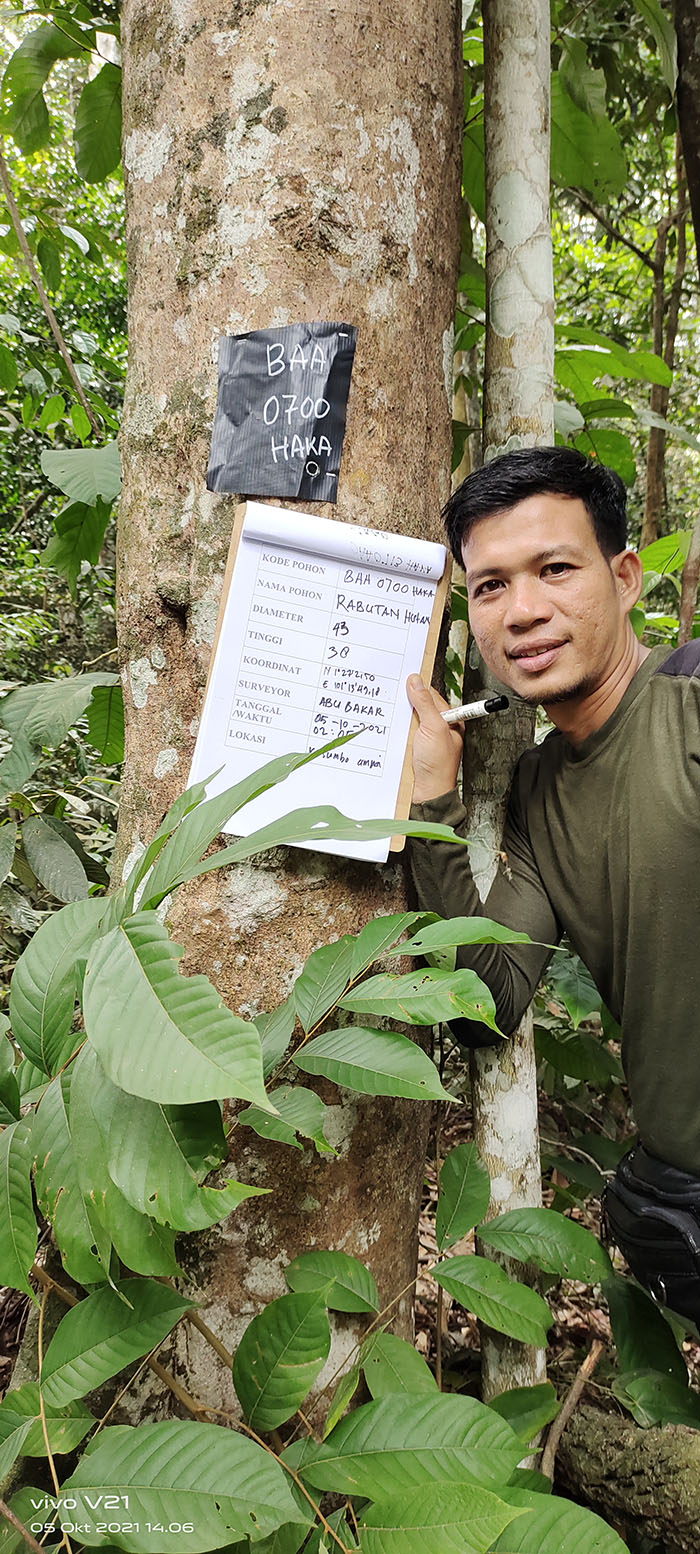 BAA
0700
HAKA
KODE POHON BAA 0700 HAKA
NAMA POHON RABUTAN HUTAN
DIAMETER 43
TINGGI 30
KOORDINAT
E 101°13'49.18
SURVEYOR ABU BAKAR
TANGGAL 05-10-2021
/WAKTU 02:05
LOKASI
vivo V21
05 Okt 2021 14.06